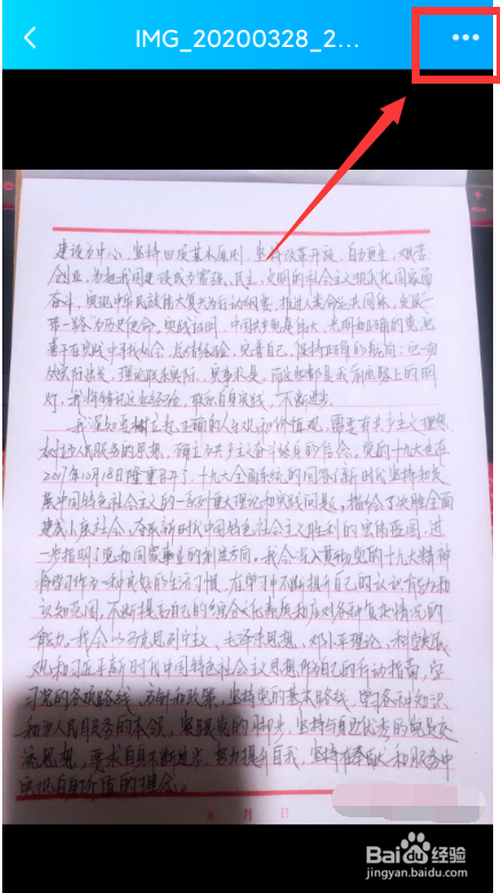 IMG_20200328_2...
建设为中心,坚持四项基本原则,坚持改革开放,自力更生,艰苦
创业,为把我国建设成为富强、民主、文明的社会主义现代化国家而
奋斗,实现中华民族伟大复兴为行动纲要,推进人类命运共同体,发展一
带一路为历史使命,实践证明,中国共产党是伟大、光明和正确的党,它
善于在实践中寻找机会,总结经验,完善自己,保持正确的航向;它一切
从实际出发,理论联系实际,实事求是,而这些都是我前进路上的明
灯,我将铭记这些经验,联系自身实践,不断进步。
我深知要树立起正确的人生观和价值观,需要有共产主义理想,
树立为人民服务的思想,确立为共产主义奋斗终身的信念。党的十九大也在
2017年10月18日隆重召开了,十九大全面系统的回答了新时代坚持和发
展中国特色社会主义的一系列重大理论和实践问题,描绘了决胜全面
建成小康社会、夺取新时代中国特色社会主义胜利的宏伟蓝图,进
一步指明了党和国家事业的前进方向。我会深入贯彻党的十九大精神
将学习作为一种良好的生活习惯,在学习中不断提升自己的认识有能力和
认知范围,不断提高自己的综合文化素质和应对各种复杂情况的
能力。我会以马克思列宁主义、毛泽东思想、邓小平理论、科学发展
观和习近平新时代中国特色社会主义思想作为自己的行动指南,学
习党的各项路线、方针和政策,坚持党的基本路线,学习各种知识
和为人民服务的本领,紧跟党的脚步,坚持与身边优秀的党员交
流思想,要求自身不断进步,努力提升自我,坚持在奉献和服务中
实现自身价值的理念。
年 月 日
Baidu经验
jingyan.baidu.com